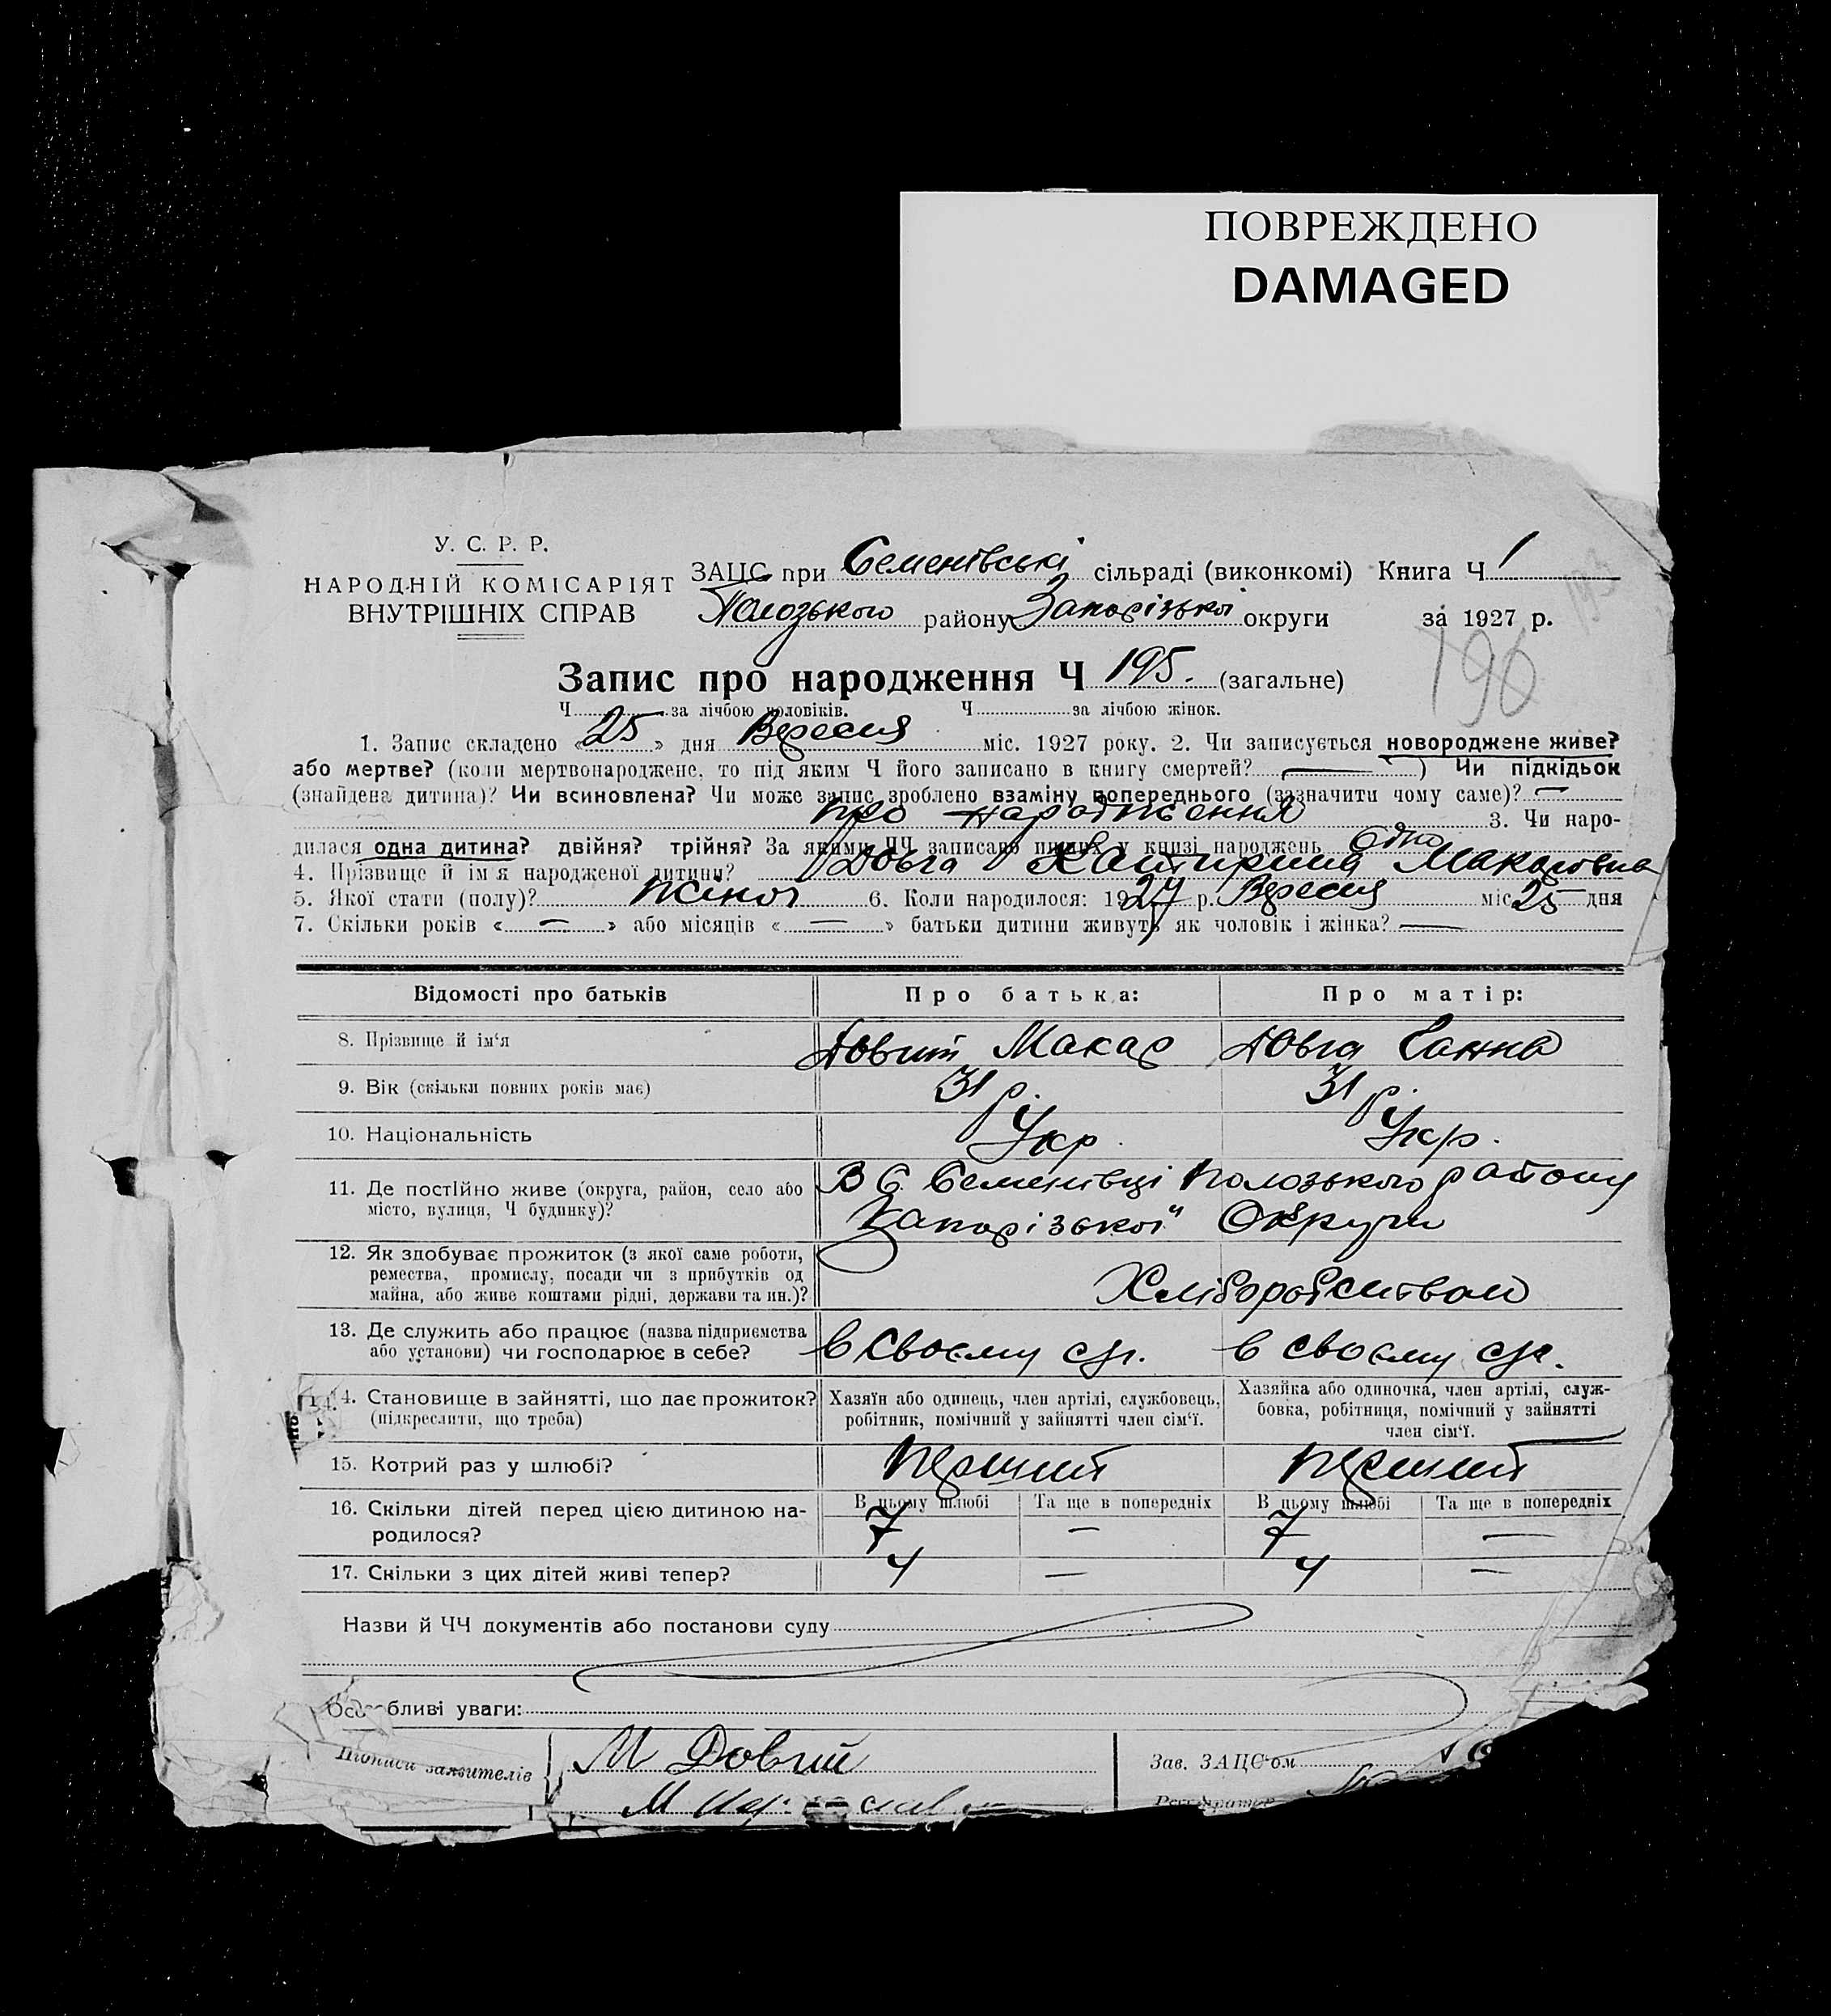 ПОВРЕЖДЕНО
DAMAGED
У. С. Р. Р.
НАРОДНІЙ КОМІСАРІЯТ
ВНУТРІШНІХ СПРАВ
ЗАЦС при Семенівські сільраді (виконкомі) Книга Ч 1
Полозького району Запорізької округи за 1927 р.
196
Запис про народження Ч 195. (загальне)
Ч за лічбою чоловіків. Ч за лічбою жінок.
1. Запис складено « 25 » дня Вересня міс. 1927 року. 2. Чи записується новороджене живе?
або мертве? (коли мертвонароджене, то під яким Ч його записано в книгу смертей? —) Чи підкідьок
(знайдена дитина)? Чи всиновлена? Чи може запис зроблено взаміну попереднього (зазначити чому саме)? —
про народження 3. Чи наро-
дилася одна дитина? двійня? трійня? За якими ЧЧ записано инших у книзі народжень Одно
4. Прізвище й ім'я народженої дитини? Довга Катирина Макаровна
5. Якої стати (полу)? жіноч 6. Коли народилося: 1927 р. Вересня міс 25 дня
7. Скільки років « — » або місяців « — » батьки дитини живуть як чоловік і жінка? —
Відомості про батьків Про батька: Про матір:
8. Прізвище й ім'я Довгий Макар Довга Ганна
9. Вік (скільки повних років має) 31 р. 31 р.
10. Національність Укр. Укр.
11. Де постійно живе (округа, район, село або місто, вулиця, Ч будинку)? В С. Семенівці Полозького району
Запорізької Округи
12. Як здобуває прожиток (з якої саме роботи,
ремества, промислу, посади чи з прибутків од
майна, або живе коштами рідні, держави та ин.)? Хліборобством
13. Де служить або працює (назва підприємства
або установи) чи господарює в себе? в своєму с/г. в своєму с/г.
14. Становище в зайнятті, що дає прожиток?
(підкреслити, що треба)
Хазяїн або одинець, член артілі, службовець,
робітник, помічний у зайнятті член сім'ї.
Хазяйка або одиночка, член артілі, служ-
бовка, робітниця, помічний у зайнятті
член сім'ї.
15. Котрий раз у шлюбі? перший перший
16. Скільки дітей перед цією дитиною на-
родилося?
В цьому шлюбі Та ще в попередніх В цьому шлюбі Та ще в попередніх
7 — 7 —
17. Скільки з цих дітей живі тепер? 4 — 4 —
Назви й ЧЧ документів або постанови суду
Особливі уваги:
Підписи заявителів М Довгий
Зав. ЗАЦС'ом